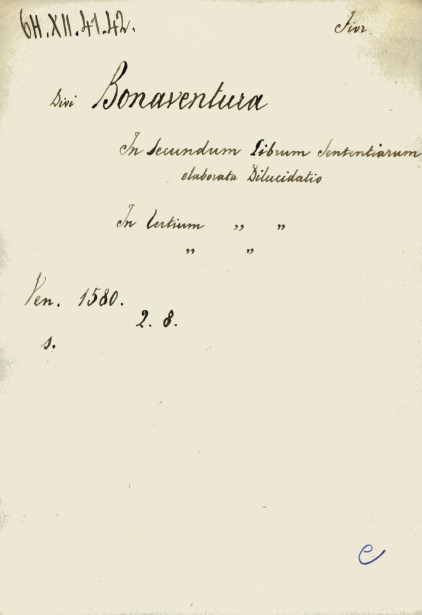 6H.XII.41.42.
Divi Bonaventura
In Secundum Librum Sententiarum
elaborata Dilucidatio
In tertium „ „
„ „
Ven. 1580.
2. 8.
s.
e